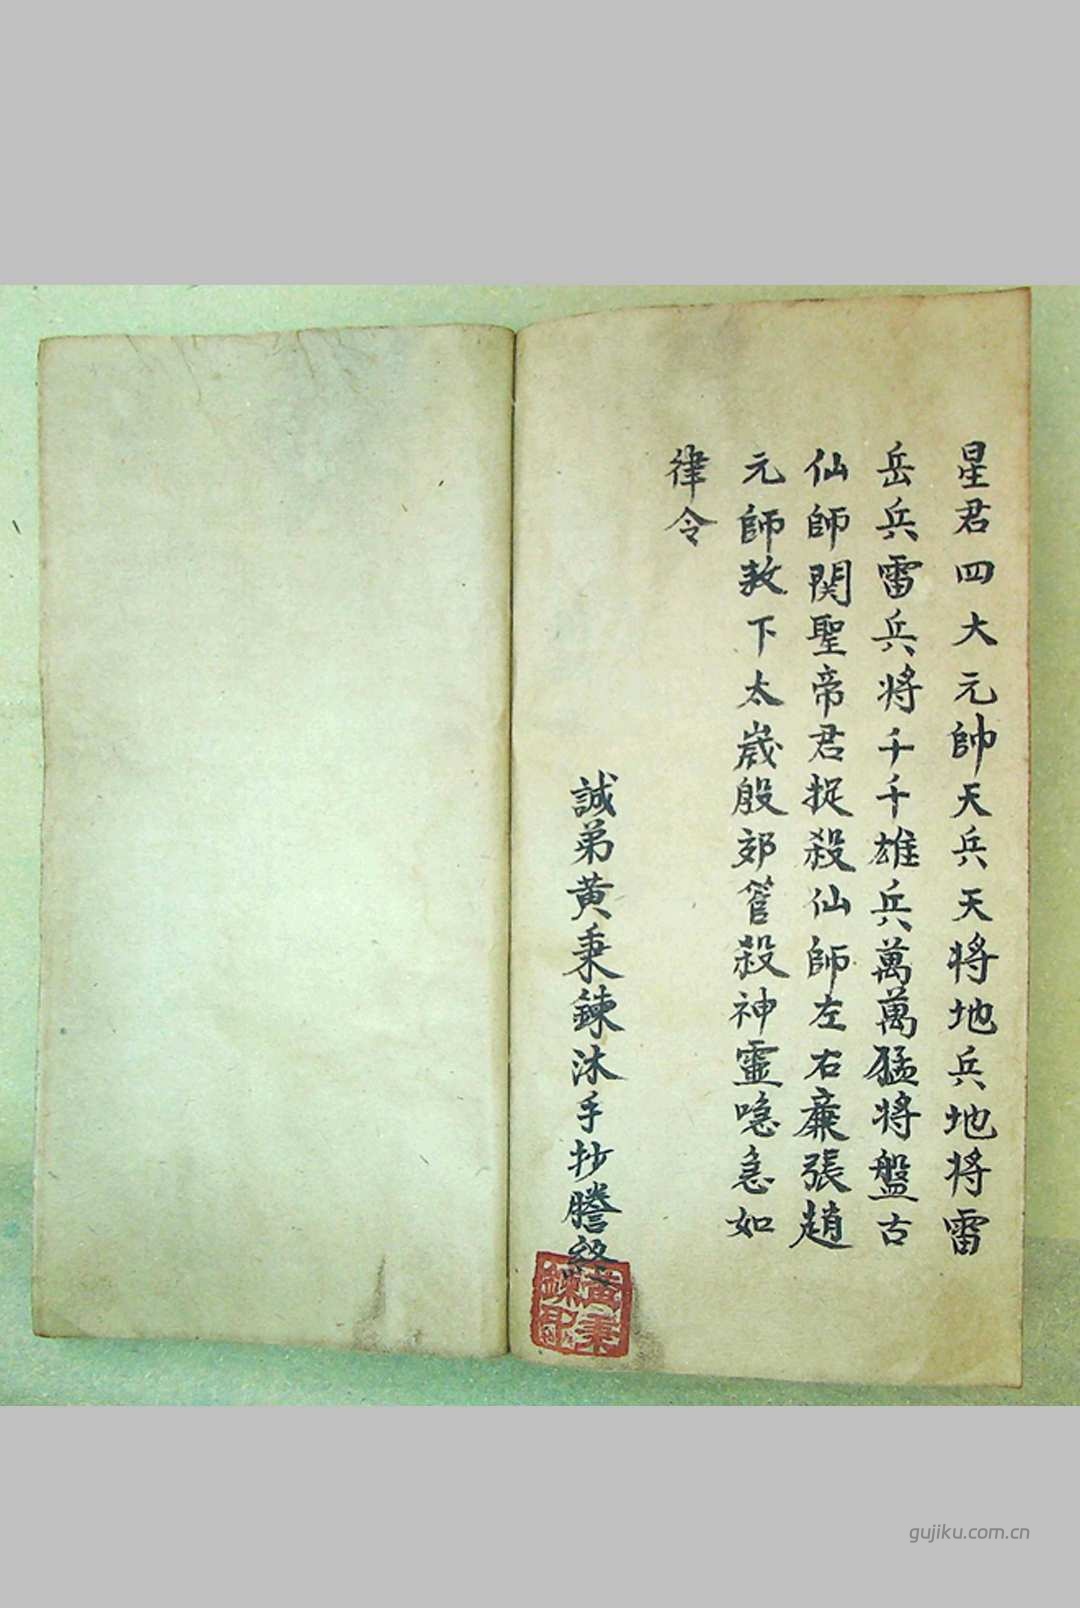 星君四大元帥天兵天將地兵地將雷
岳兵雷兵將千千雄兵萬萬猛將盤古
仙師関聖帝君捉殺仙師左右亷張趙
元師敕下太歲殷郊管殺神靈喼急如
律令
誠弟黄秉鍊沐手抄謄終
黄秉
鍊印
gujiku.com.cn